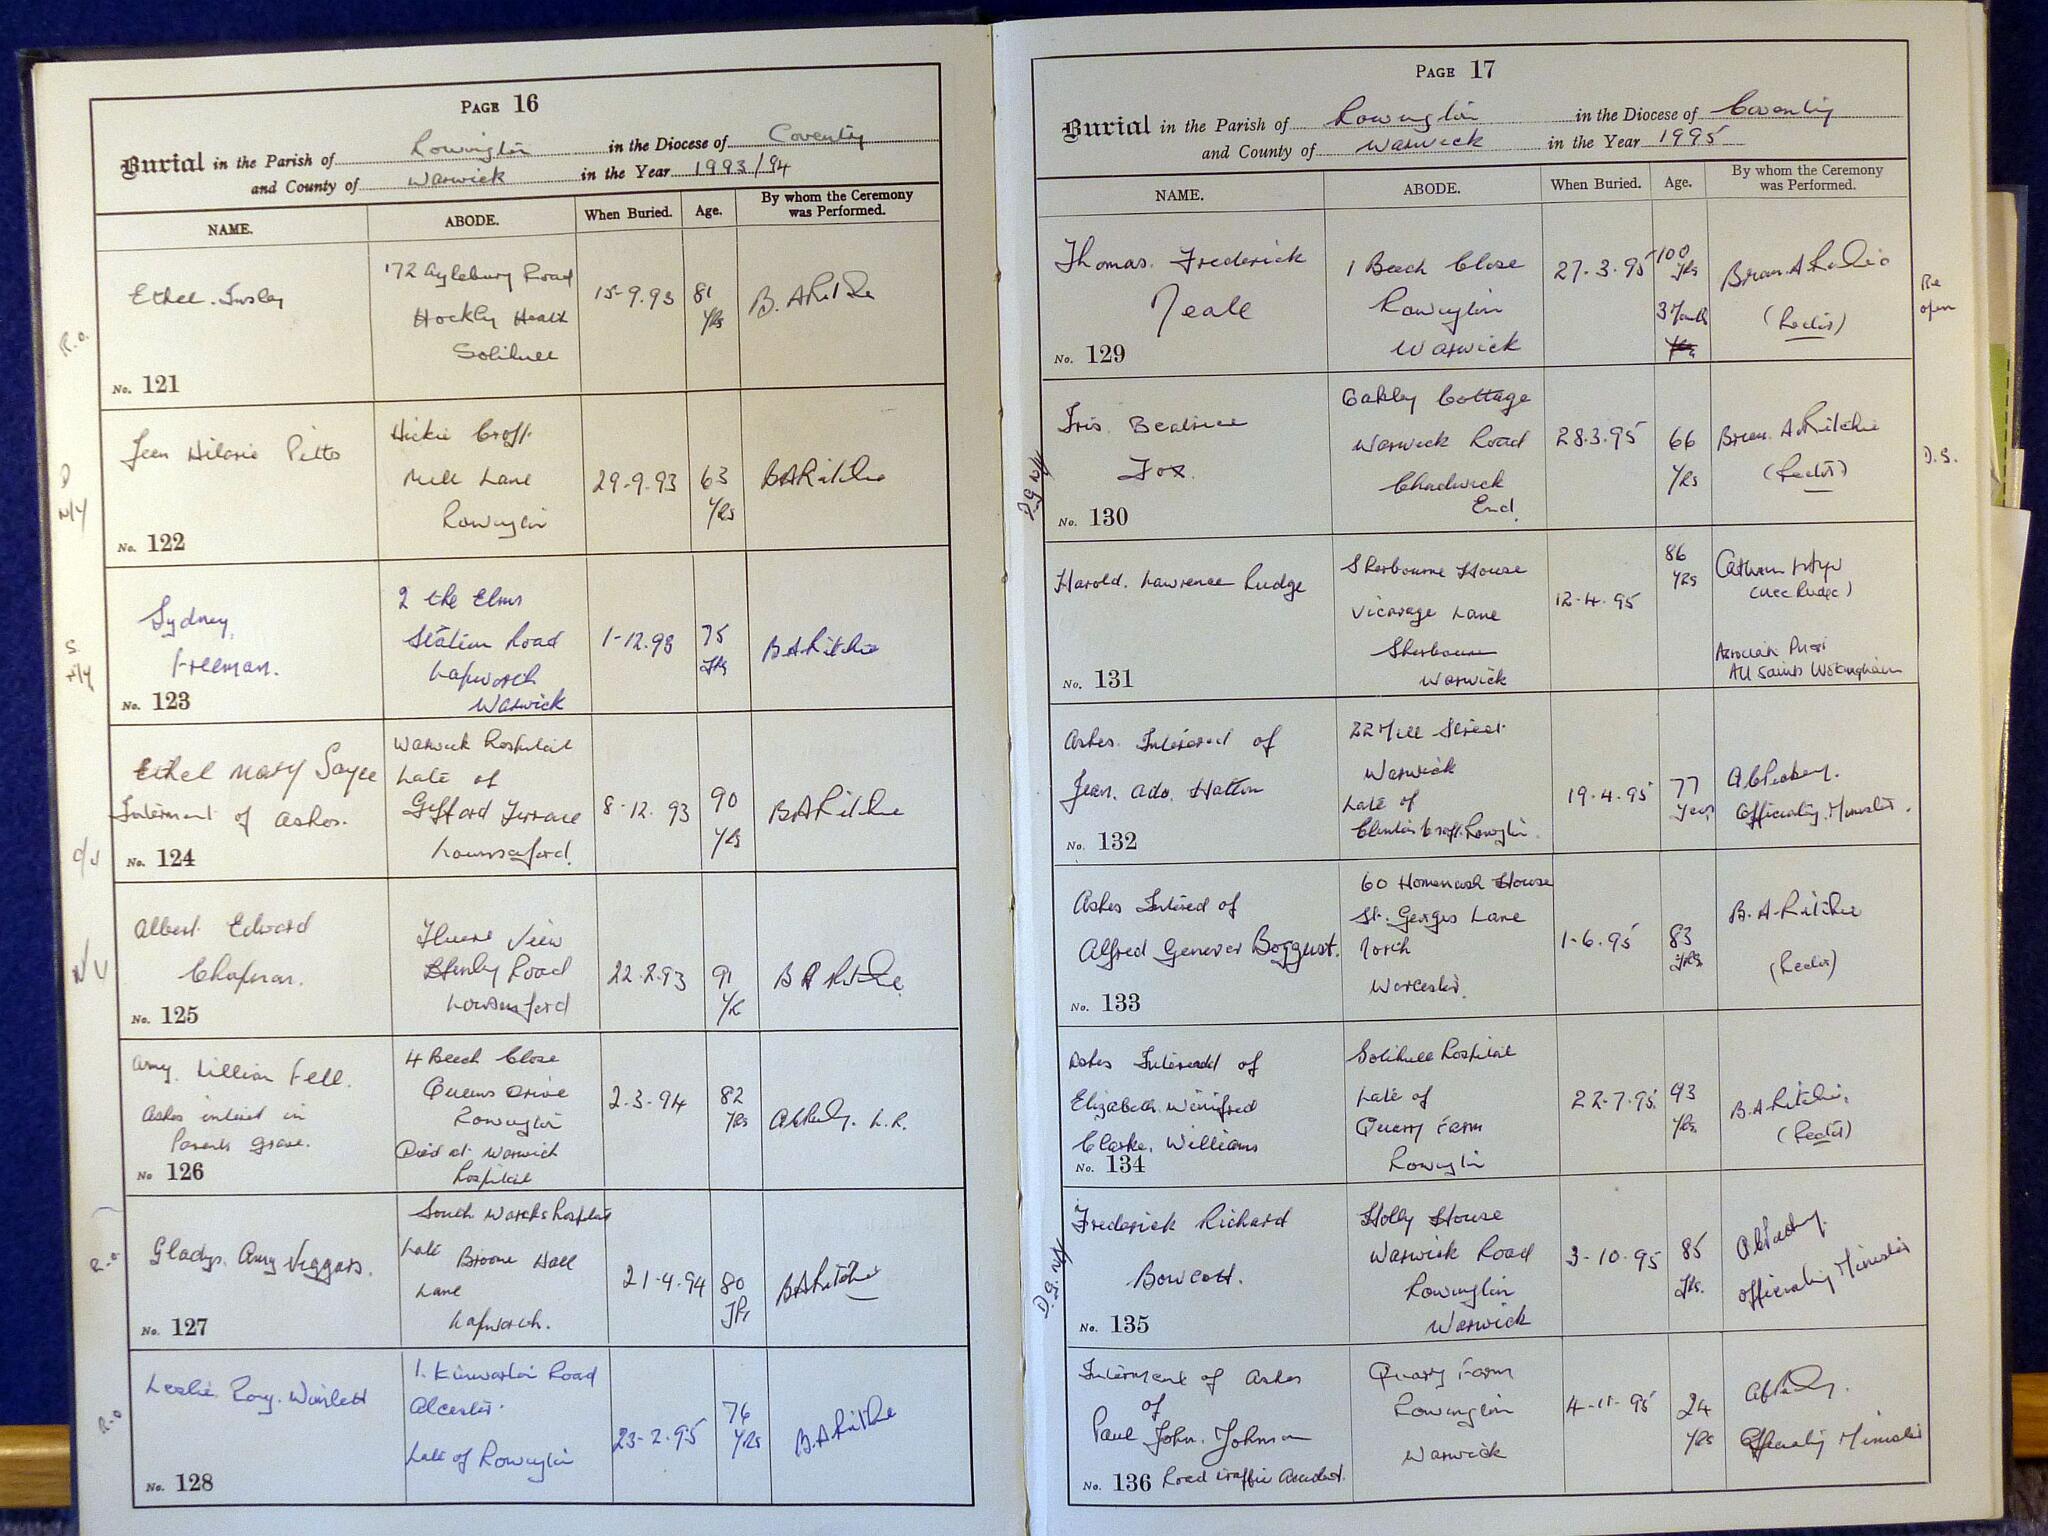 PAGE 16
Burial in the Parish of Rowington in the Diocese of Coventry
and County of Warwick in the Year 1993/94
NAME. ABODE. When Buried. Age. By whom the Ceremony was Performed.
R.O.
Ethel Insley
172 Aylesbury Road
Hockley Heath
Solihull
15-9-93
81
Yrs
B. A Ritchie
No. 121
D
N/Y
Jean Hilarie Pitts
Hickie Croft
Mill Lane
Rowington
29-9-93
63
Yrs
B A Ritchie
No. 122
S.
Sydney
Freeman.
2 the Elms
Station Road
Lapworth
Warwick
1-12.93
75
Yrs
B.A.Ritchie
No. 123
Ethel Mary Sayce
Interment of Ashes.
Warwick Hospital
Late of
Gifford Terrace
8-12.93
90
Yrs
B.A.Ritchie
No. 124
Albert Edward
Chapman.
View
Henley Road
Lowsonford
22.2.93
91
B A Ritchie
No. 125
Amy. Lillian Fell.
Ashes interred in
Parents Grave.
4 Beech Close
Queens Drive
Rowington
Died at Warwick
Hospital
2-3-94
82
Yrs
L.R.
No 126
R-O
Gladys. Amy Viggars.
South Warcks Hospital
Late Broome Hall
Lane
Lapworth.
21-4-94
80
Yrs
B.A.Ritchie
No. 127
R-O
Leslie Roy
1. Kinwarton Road
Alcester.
Late of Rowington
23-2-95
76
Yrs
B.A.Ritchie
No. 128
PAGE 17
Burial in the Parish of Rowington in the Diocese of Coventry
and County of Warwick in the Year 1995
NAME. ABODE. When Buried. Age. By whom the Ceremony was Performed.
Thomas. Frederick
Neale
1 Beech Close
Rowington
Warwick
27-3-95
100
Yrs
3 Months
Brian A Ritchie
(Rector)
Re
open
No. 129
Iris. Beatrice
Fox.
Oakley Cottage
Warwick Road
Chadwick
End.
28.3.95
66
Yrs
Brian. A. Ritchie
(Rector)
D.S.
No. 130
Harold. Lawrence Rudge
Sherbourne House
Vicarage Lane
Sherbourne
Warwick
12-4-95
86
Yrs
(nee Rudge)
Associate Priest
All Saints Wokingham
No. 131
Ashes Interred of
Jean. Ada. Hatton
22 Mill Street
Warwick
Late of
Clinton Croft. Rowington.
19-4-95
77
Years
Officiating. Minister.
No. 132
Ashes Interred of
Alfred Genever Boggust.
60 Homenash House
St. Georges Lane
North
Worcester.
1-6.95
83
Yrs.
B. A. Ritchie
(Rector)
No. 133
Ashes Interred of
Elizabeth Winifred
Clarke. Williams
Solihull Hospital
Late of
Quarry Farm
Rowington
22-7-95.
93
Yrs.
B.A.Ritchie.
(Rector)
No. 134
Frederick Richard
Bowcott.
Holly House
Warwick Road
Rowington
Warwick
3-10-95
85
Yrs.
Officiating Minister
No. 135
Interment of Ashes
of
Paul John. Johnson
Quarry Farm
Rowington
Warwick
4-11-95
24
Yrs
Officiating Minister
No. 136 Road traffic Accident.